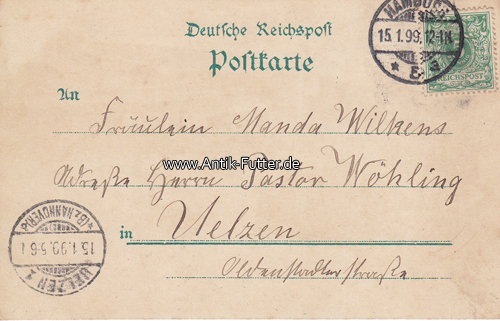 Deutsche Reichspost
Postkarte
HAMBURG
15.1.99.12-1N.
REICHSPOST
An
Fräulein Manda Wilkens
www.Antik-Futter.de
Adreße Herrn Pastor Wöhling
in Uelzen
Oldenstadterstraße
UELZEN
15.1.99.5-6
(BZ.HANNOVER)